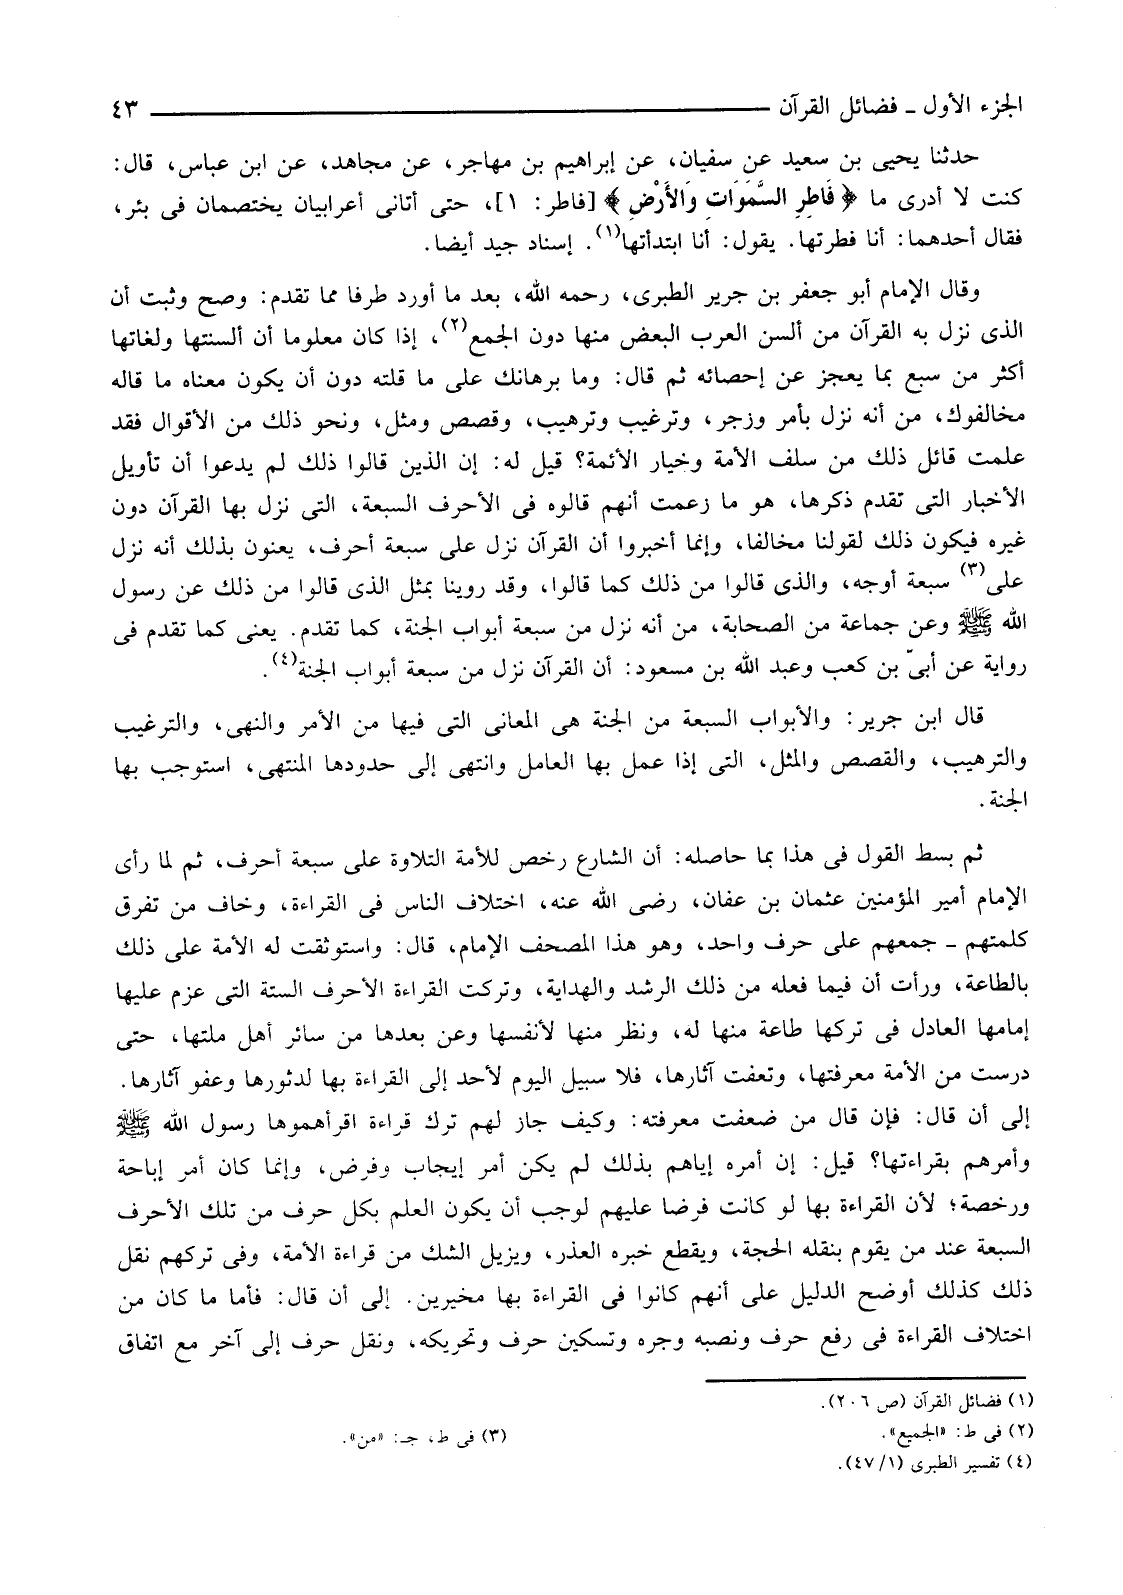 الجزء الأول ـ فضائل القرآن ٤٣
حدثنا يحيى بن سعيد عن سفيان، عن إبراهيم بن مهاجر، عن مجاهد، عن ابن عباس، قال:
كنت لا أدرى ما ﴿ فَاطِرِ السَّمَوَاتِ وَالأَرْضِ ﴾ [فاطر: ١]، حتى أتانى أعرابيان يختصمان فى بئر،
فقال أحدهما: أنا فطرتها. يقول: أنا ابتدأتها(١). إسناد جيد أيضا.
وقال الإمام أبو جعفر بن جرير الطبرى، رحمه الله، بعد ما أورد طرفا مما تقدم: وصح وثبت أن
الذى نزل به القرآن من ألسن العرب البعض منها دون الجمع(٢)، إذا كان معلوما أن ألسنتها ولغاتها
أكثر من سبع بما يعجز عن إحصائه ثم قال: وما برهانك على ما قلته دون أن يكون معناه ما قاله
مخالفوك، من أنه نزل بأمر وزجر، وترغيب وترهيب، وقصص ومثل، ونحو ذلك من الأقوال فقد
علمت قائل ذلك من سلف الأمة وخيار الأئمة؟ قيل له: إن الذين قالوا ذلك لم يدعوا أن تأويل
الأخبار التى تقدم ذكرها، هو ما زعمت أنهم قالوه فى الأحرف السبعة، التى نزل بها القرآن دون
غيره فيكون ذلك لقولنا مخالفا، وإنما أخبروا أن القرآن نزل على سبعة أحرف، يعنون بذلك أنه نزل
على(٣) سبعة أوجه، والذى قالوا من ذلك كما قالوا، وقد روينا بمثل الذى قالوا من ذلك عن رسول
الله ﷺ وعن جماعة من الصحابة، من أنه نزل من سبعة أبواب الجنة، كما تقدم. يعنى كما تقدم فى
رواية عن أبىّ بن كعب وعبد الله بن مسعود: أن القرآن نزل من سبعة أبواب الجنة(٤).
قال ابن جرير: والأبواب السبعة من الجنة هى المعانى التى فيها من الأمر والنهى، والترغيب
والترهيب، والقصص والمثل، التى إذا عمل بها العامل وانتهى إلى حدودها المنتهى، استوجب بها
الجنة.
ثم بسط القول فى هذا بما حاصله: أن الشارع رخص للأمة التلاوة على سبعة أحرف، ثم لما رأى
الإمام أمير المؤمنين عثمان بن عفان، رضى الله عنه، اختلاف الناس فى القراءة، وخاف من تفرق
كلمتهم ـ جمعهم على حرف واحد، وهو هذا المصحف الإمام، قال: واستوثقت له الأمة على ذلك
بالطاعة، ورأت أن فيما فعله من ذلك الرشد والهداية، وتركت القراءة الأحرف الستة التى عزم عليها
إمامها العادل فى تركها طاعة منها له، ونظر منها لأنفسها وعن بعدها من سائر أهل ملتها، حتى
درست من الأمة معرفتها، وتعفت آثارها، فلا سبيل اليوم لأحد إلى القراءة بها لدثورها وعفو آثارها.
إلى أن قال: فإن قال من ضعفت معرفته: وكيف جاز لهم ترك قراءة اقرأهموها رسول الله ﷺ
وأمرهم بقراءتها؟ قيل: إن أمره إياهم بذلك لم يكن أمر إيجاب وفرض، وإنما كان أمر إباحة
ورخصة؛ لأن القراءة بها لو كانت فرضا عليهم لوجب أن يكون العلم بكل حرف من تلك الأحرف
السبعة عند من يقوم بنقله الحجة، ويقطع خبره العذر، ويزيل الشك من قراءة الأمة، وفى تركهم نقل
ذلك كذلك أوضح الدليل على أنهم كانوا فى القراءة بها مخيرين. إلى أن قال: فأما ما كان من
اختلاف القراءة فى رفع حرف ونصبه وجره وتسكين حرف وتحريكه، ونقل حرف إلى آخر مع اتفاق
(١) فضائل القرآن (ص ٢٠٦).
(٢) فى ط: «الجميع».
(٣) فى ط، جـ: «من».
(٤) تفسير الطبرى (١/ ٤٧).